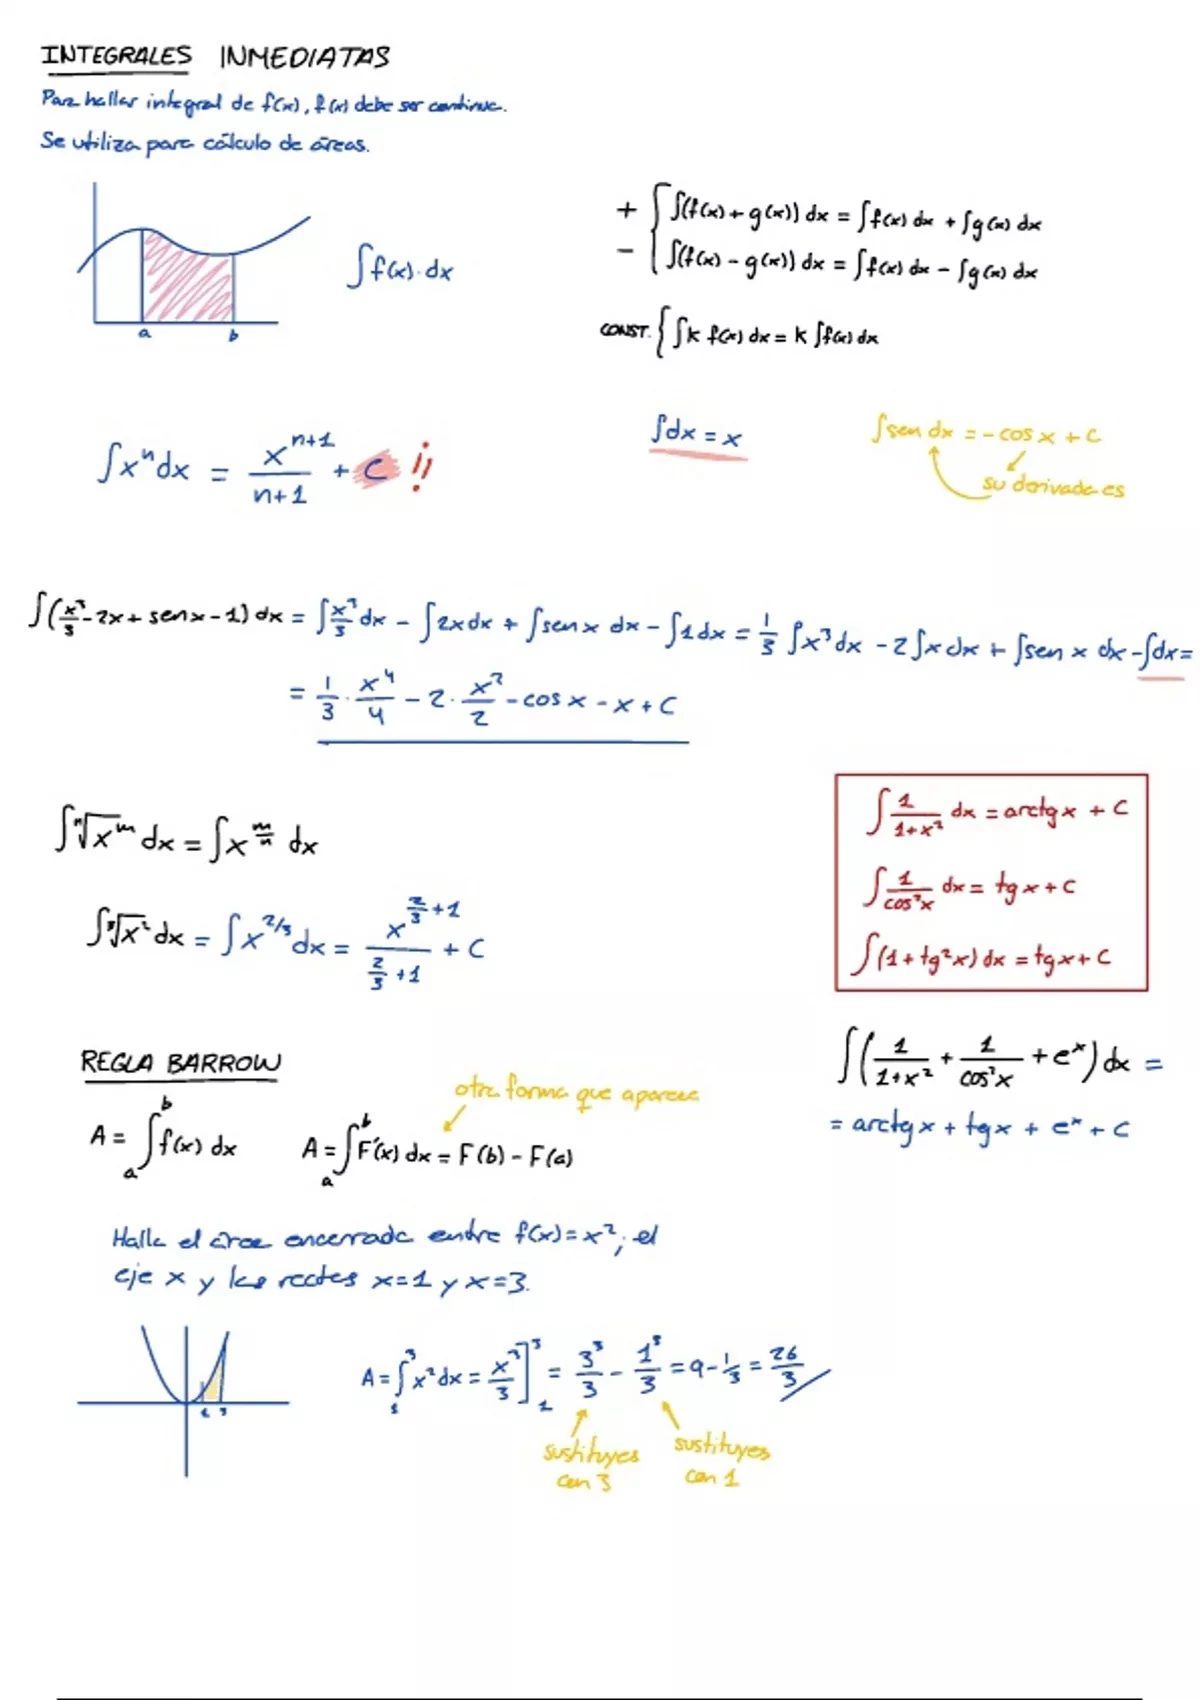 INTEGRALES INMEDIATAS
Para hallar integral de f(x), f(x) debe ser continua.
Se utiliza para cálculo de áreas.
a b
∫f(x)·dx
+ { ∫(f(x) + g(x)) dx = ∫f(x) dx + ∫g(x) dx
- { ∫(f(x) - g(x)) dx = ∫f(x) dx - ∫g(x) dx
CONST. { ∫k f(x) dx = k ∫f(x) dx
∫xⁿdx = x^(n+1)/(n+1) + C !!
∫dx = x
∫sen dx = -cos x + C
su derivada es
∫(x³/3 - 2x + sen x - 1) dx = ∫x³/3 dx - ∫2xdx + ∫sen x dx - ∫1dx = 1/3 ∫x³dx - 2∫xdx + ∫sen x dx - ∫dx =
= 1/3 · x⁴/4 - 2 · x²/2 - cos x - x + C
∫ⁿ√x^m dx = ∫x^(m/n) dx
∫³√x² dx = ∫x^(2/3) dx = x^(2/3+1)/(2/3+1) + C
∫1/(1+x²) dx = arctg x + C
∫1/cos²x dx = tg x + C
∫(1 + tg²x) dx = tg x + C
∫(1/(1+x²) + 1/cos²x + eˣ) dx =
= arctg x + tg x + eˣ + C
REGLA BARROW
otra forma que aparece
A = ∫ₐᵇ f(x) dx A = ∫ₐᵇ F'(x) dx = F(b) - F(a)
Halla el área encerrada entre f(x) = x², el
eje x y las rectas x=1 y x=3.
1 3
A = ∫₁³ x²dx = x³/3 ]₁³ = 3³/3 - 1³/3 = 9 - 1/3 = 26/3
sustituyes con 3
sustituyes con 1